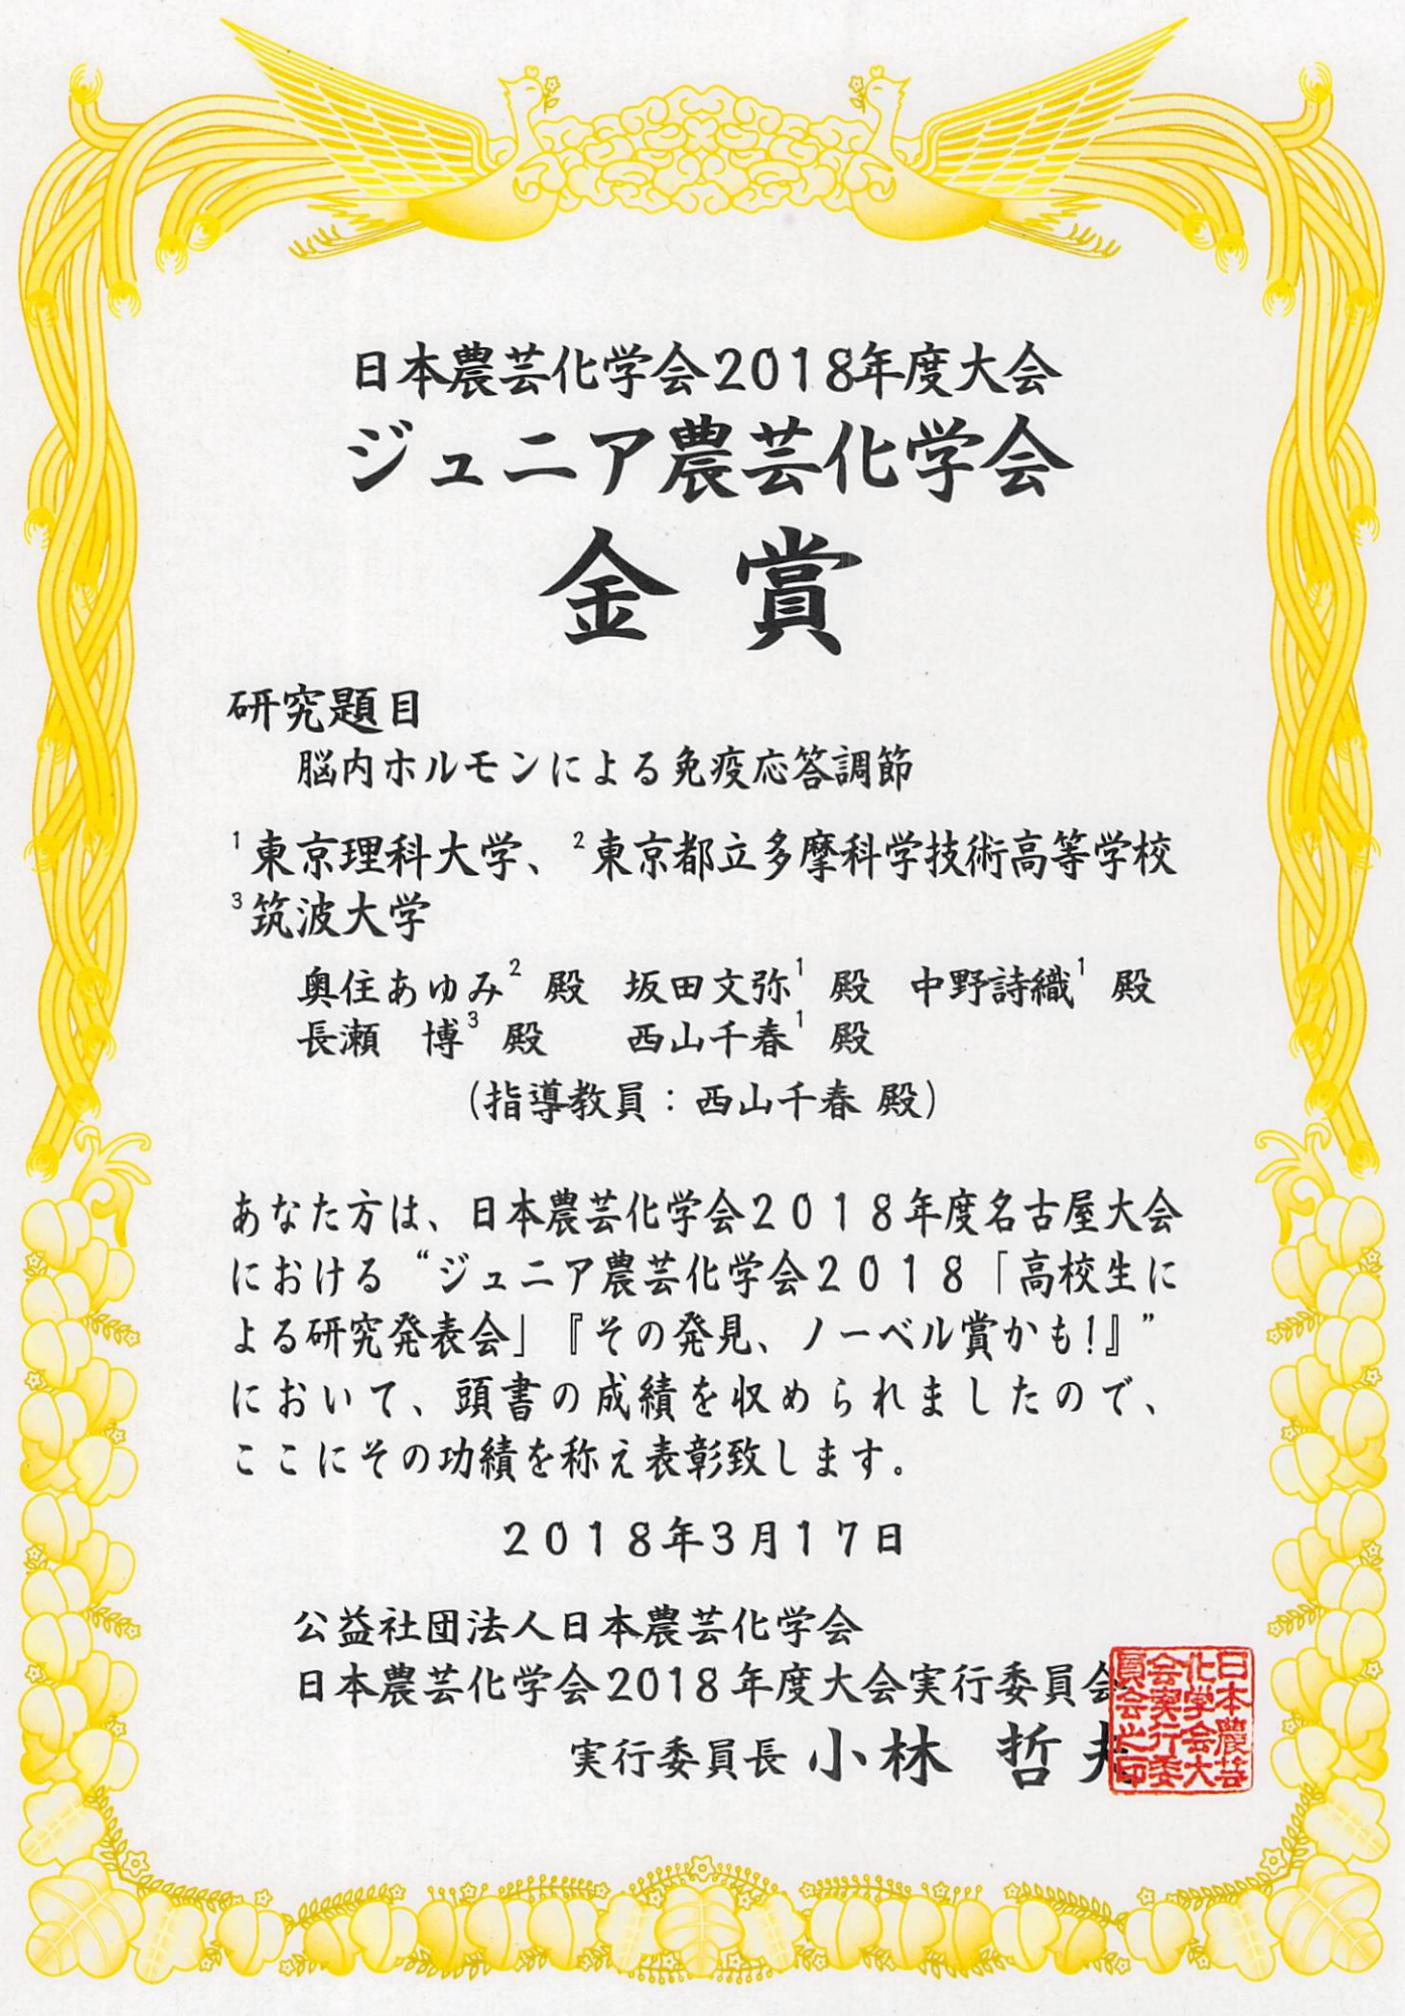 日本農芸化学会2018年度大会
ジュニア農芸化学会
金賞
研究題目
脳内ホルモンによる免疫応答調節
¹東京理科大学、²東京都立多摩科学技術高等学校
³筑波大学
奥住あゆみ² 殿 坂田文弥¹ 殿 中野詩織¹ 殿
長瀬 博³ 殿 西山千春¹ 殿
(指導教員:西山千春 殿)
あなた方は、日本農芸化学会2018年度名古屋大会
における“ジュニア農芸化学会2018「高校生に
よる研究発表会」『その発見、ノーベル賞かも!』”
において、頭書の成績を収められましたので、
ここにその功績を称え表彰致します。
2018年3月17日
公益社団法人日本農芸化学会
日本農芸化学会2018年度大会実行委員会
実行委員長 小林 哲夫
日本農芸化学会大会実行委員会之印